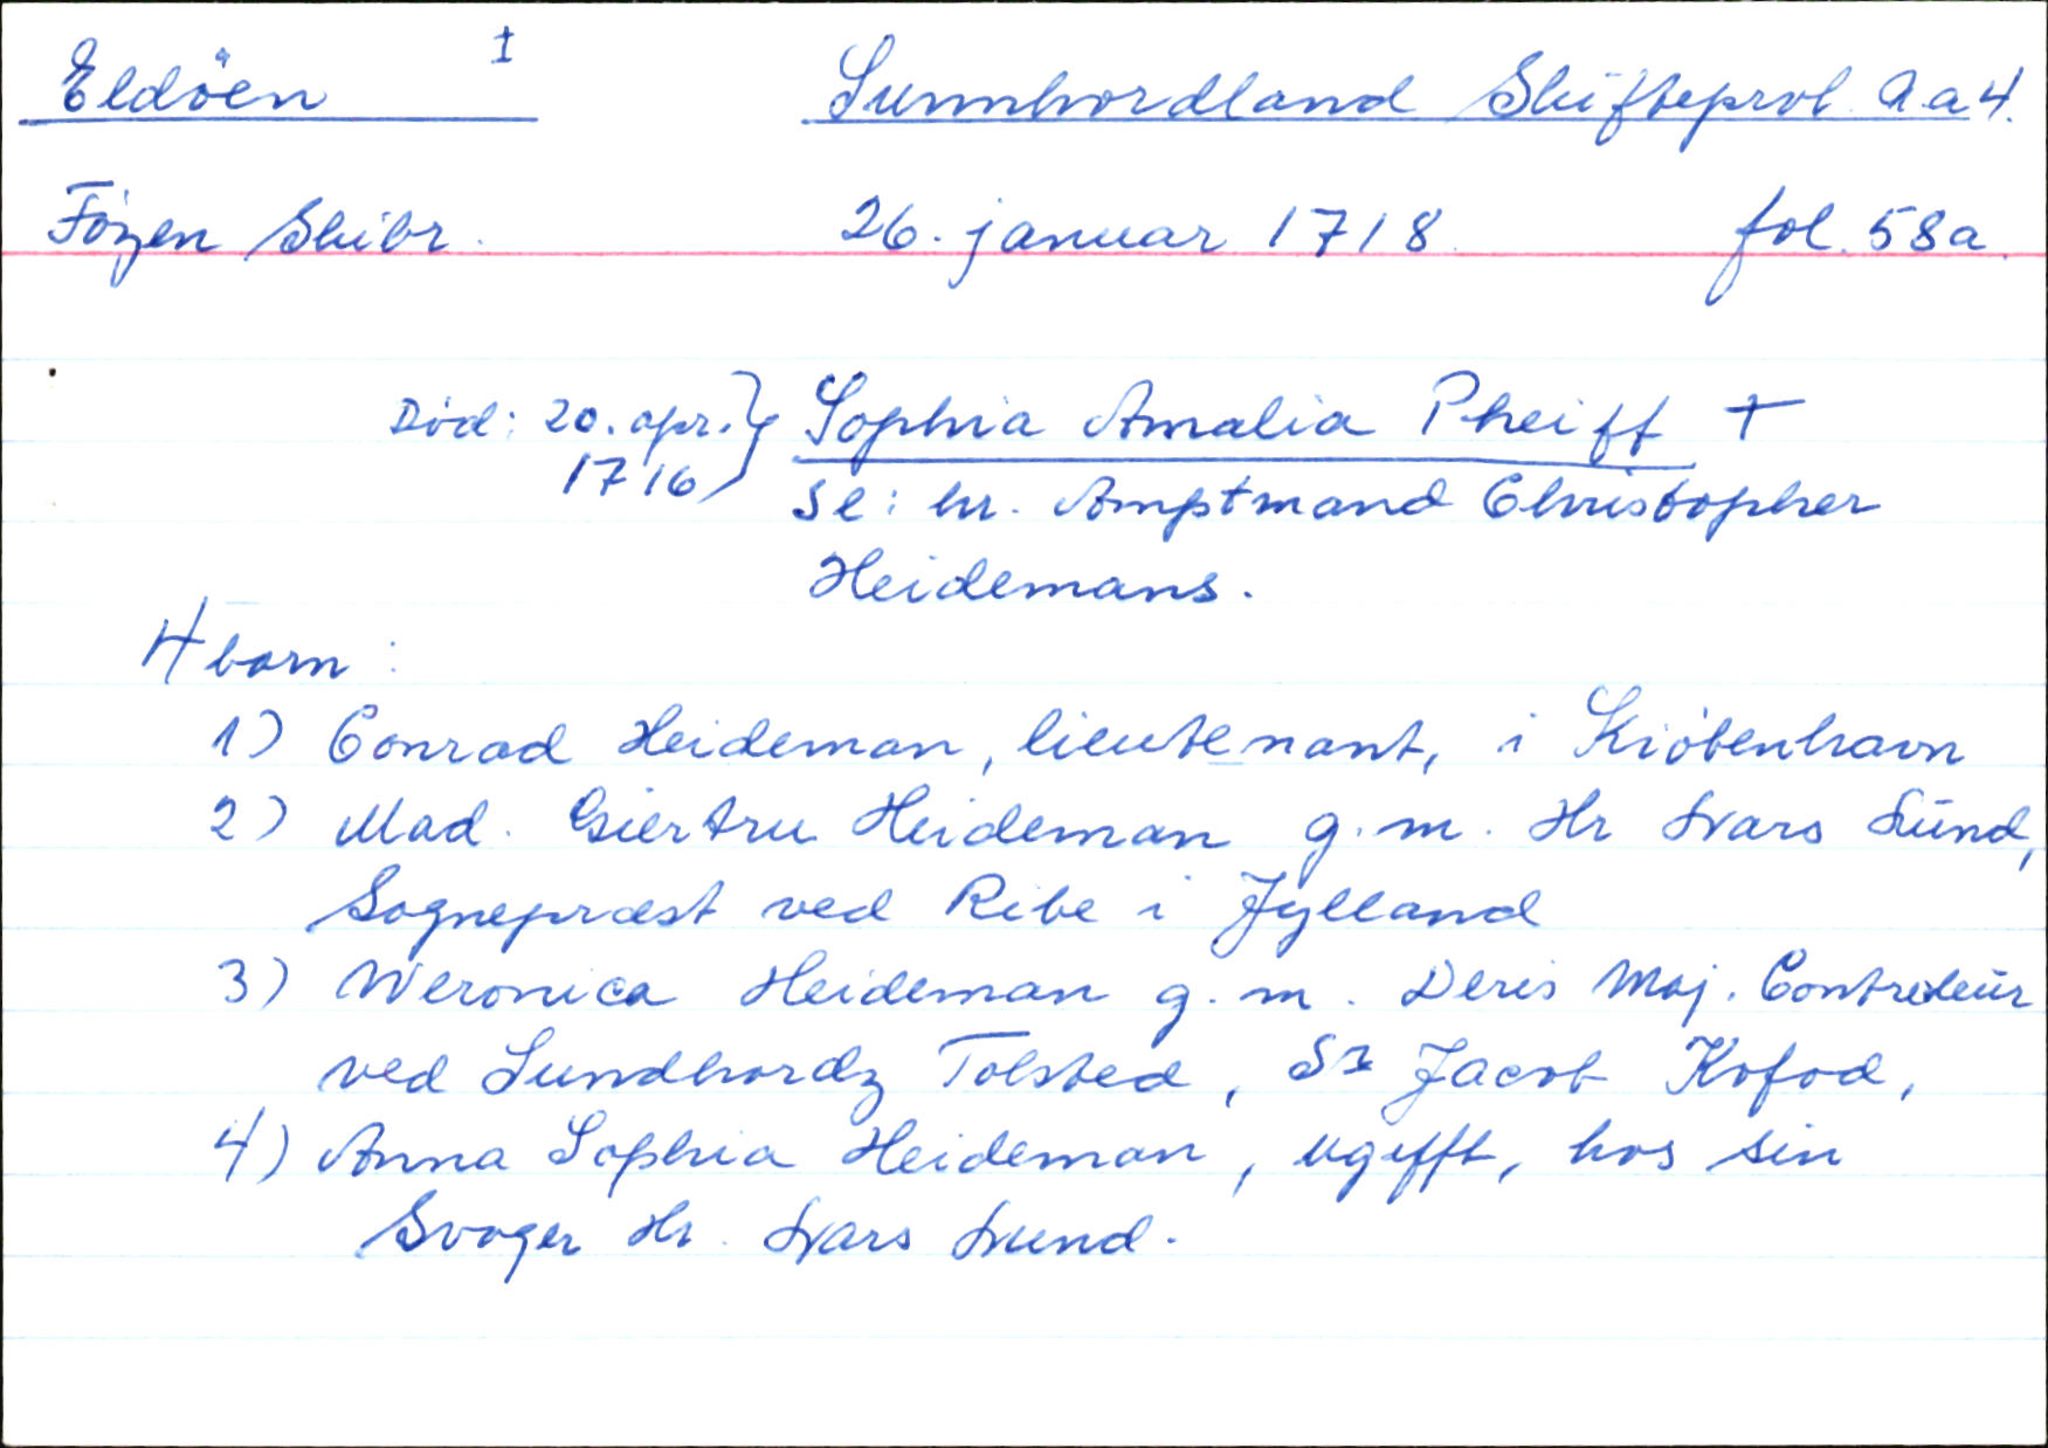 Eldöen I Sunnhordland Skifteprot. A.a 4.
Föyen Skibr. 26. januar 1718 fol. 58a.
Död: 20. apr. } Sophia Amalia Pheiff +
1716 Sl: hr. Amptmand Christopher
Heidemans.
4 born:
1) Conrad Heideman, lieutenant, i Kiöbenhavn
2) Mad. Giertru Heideman g.m. Hr Lars Lünd,
Sogneprest ved Ribe i Jylland
3) Weronica Heideman g.m. Deris Maj. Contreleür
ved Sundhordz Tolsted, Sr Jacob Kofod,
4) Anna Sophia Heideman, ugifft, hos sin
Svoger Hr. Lars Lund.